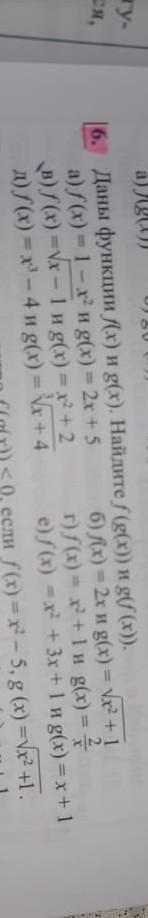 гу-
ся,
а) f(g(x))
6. Даны функции f(x) и g(x). Найдите f(g(x)) и g(f(x)).
а) f(x) = 1 − x² и g(x) = 2x + 5 б) f(x) = 2x и g(x) = √(x² + 1)
в) f(x) = √(x − 1) и g(x) = x² + 2 г) f(x) = x² + 1 и g(x) = 2/x
д) f(x) = x³ − 4 и g(x) = ∛(x + 4) е) f(x) = x² + 3x + 1 и g(x) = x + 1
f(g(x)) < 0, если f(x) = x² − 5, g(x) = √(x² + 1).